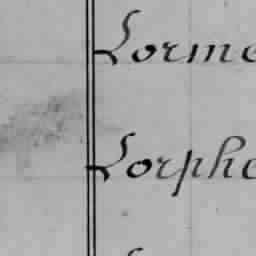 Lorme
Lorphe